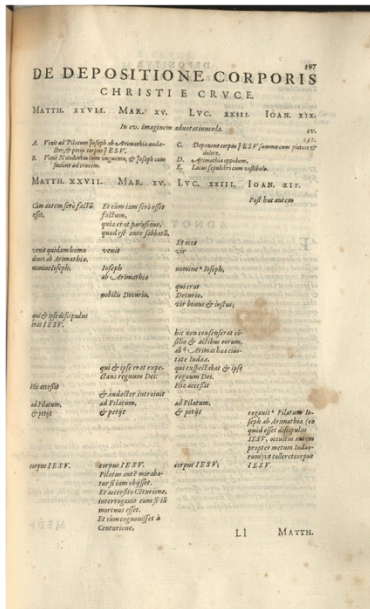 197
DE DEPOSITIONE CORPORIS
CHRISTI E CRVCE.
MATTH. XXVII. MAR. XV. LVC. XXIII. IOAN. XIX.
In eâ imaginem adnotatiuncula.
A. Venit ad Pilatum Ioseph ab Arimathia audacter, & petit corpus IESV.
B. Venit Nicodemus cum unguento, & Ioseph cum
C. Deponunt corpus IESV summa cum pietate & dolore.
D. Arimathia oppidum.
E. Locus sepulchri cum vestibulo.
MATTH. XXVII. MAR. XV. LVC. XXIII. IOAN. XIX.
Cùm autem serò factũ
esset,
venit quidam homo
diues ab Arimathia,
nomine Ioseph,
qui & ipse discipulus
erat IESV.
Hic accessit
ad Pilatum,
& petijt
corpus IESV.
Et cùm iam serò esset
factum,
quia erat parasceue,
quod est ante sabbatũ,
venit
Ioseph
ab Arimathia
nobilis Decurio,
qui & ipse erat expe-
ctans regnum Dei:
& audacter introiuit
ad Pilatum,
& petijt
corpus IESV.
Pilatus autē miraba-
tur si iam obijsset.
Et accersito Cēturione,
interrogauit eum si iã
mortuus esset.
Et cùm cognouisset à
Centurione,
Et ecce
vir
nomine Ioseph,
qui erat
Decurio,
vir bonus & iustus;
hic non consenserat cō-
silio & actibus eorum,
ab Arimathæa ciui-
tate Iudææ.
qui exspectabat & ipse
regnum Dei.
Hic accessit
ad Pilatum,
& petijt
corpus IESV;
Post hæc autem
rogauit Pilatum Io-
seph ab Arimathia (eo
quòd esset discipulus
IESV, occultus autem
propter metum Iudæo-
rum) vt tolleret corpus
IESV.
Ll MATTH.